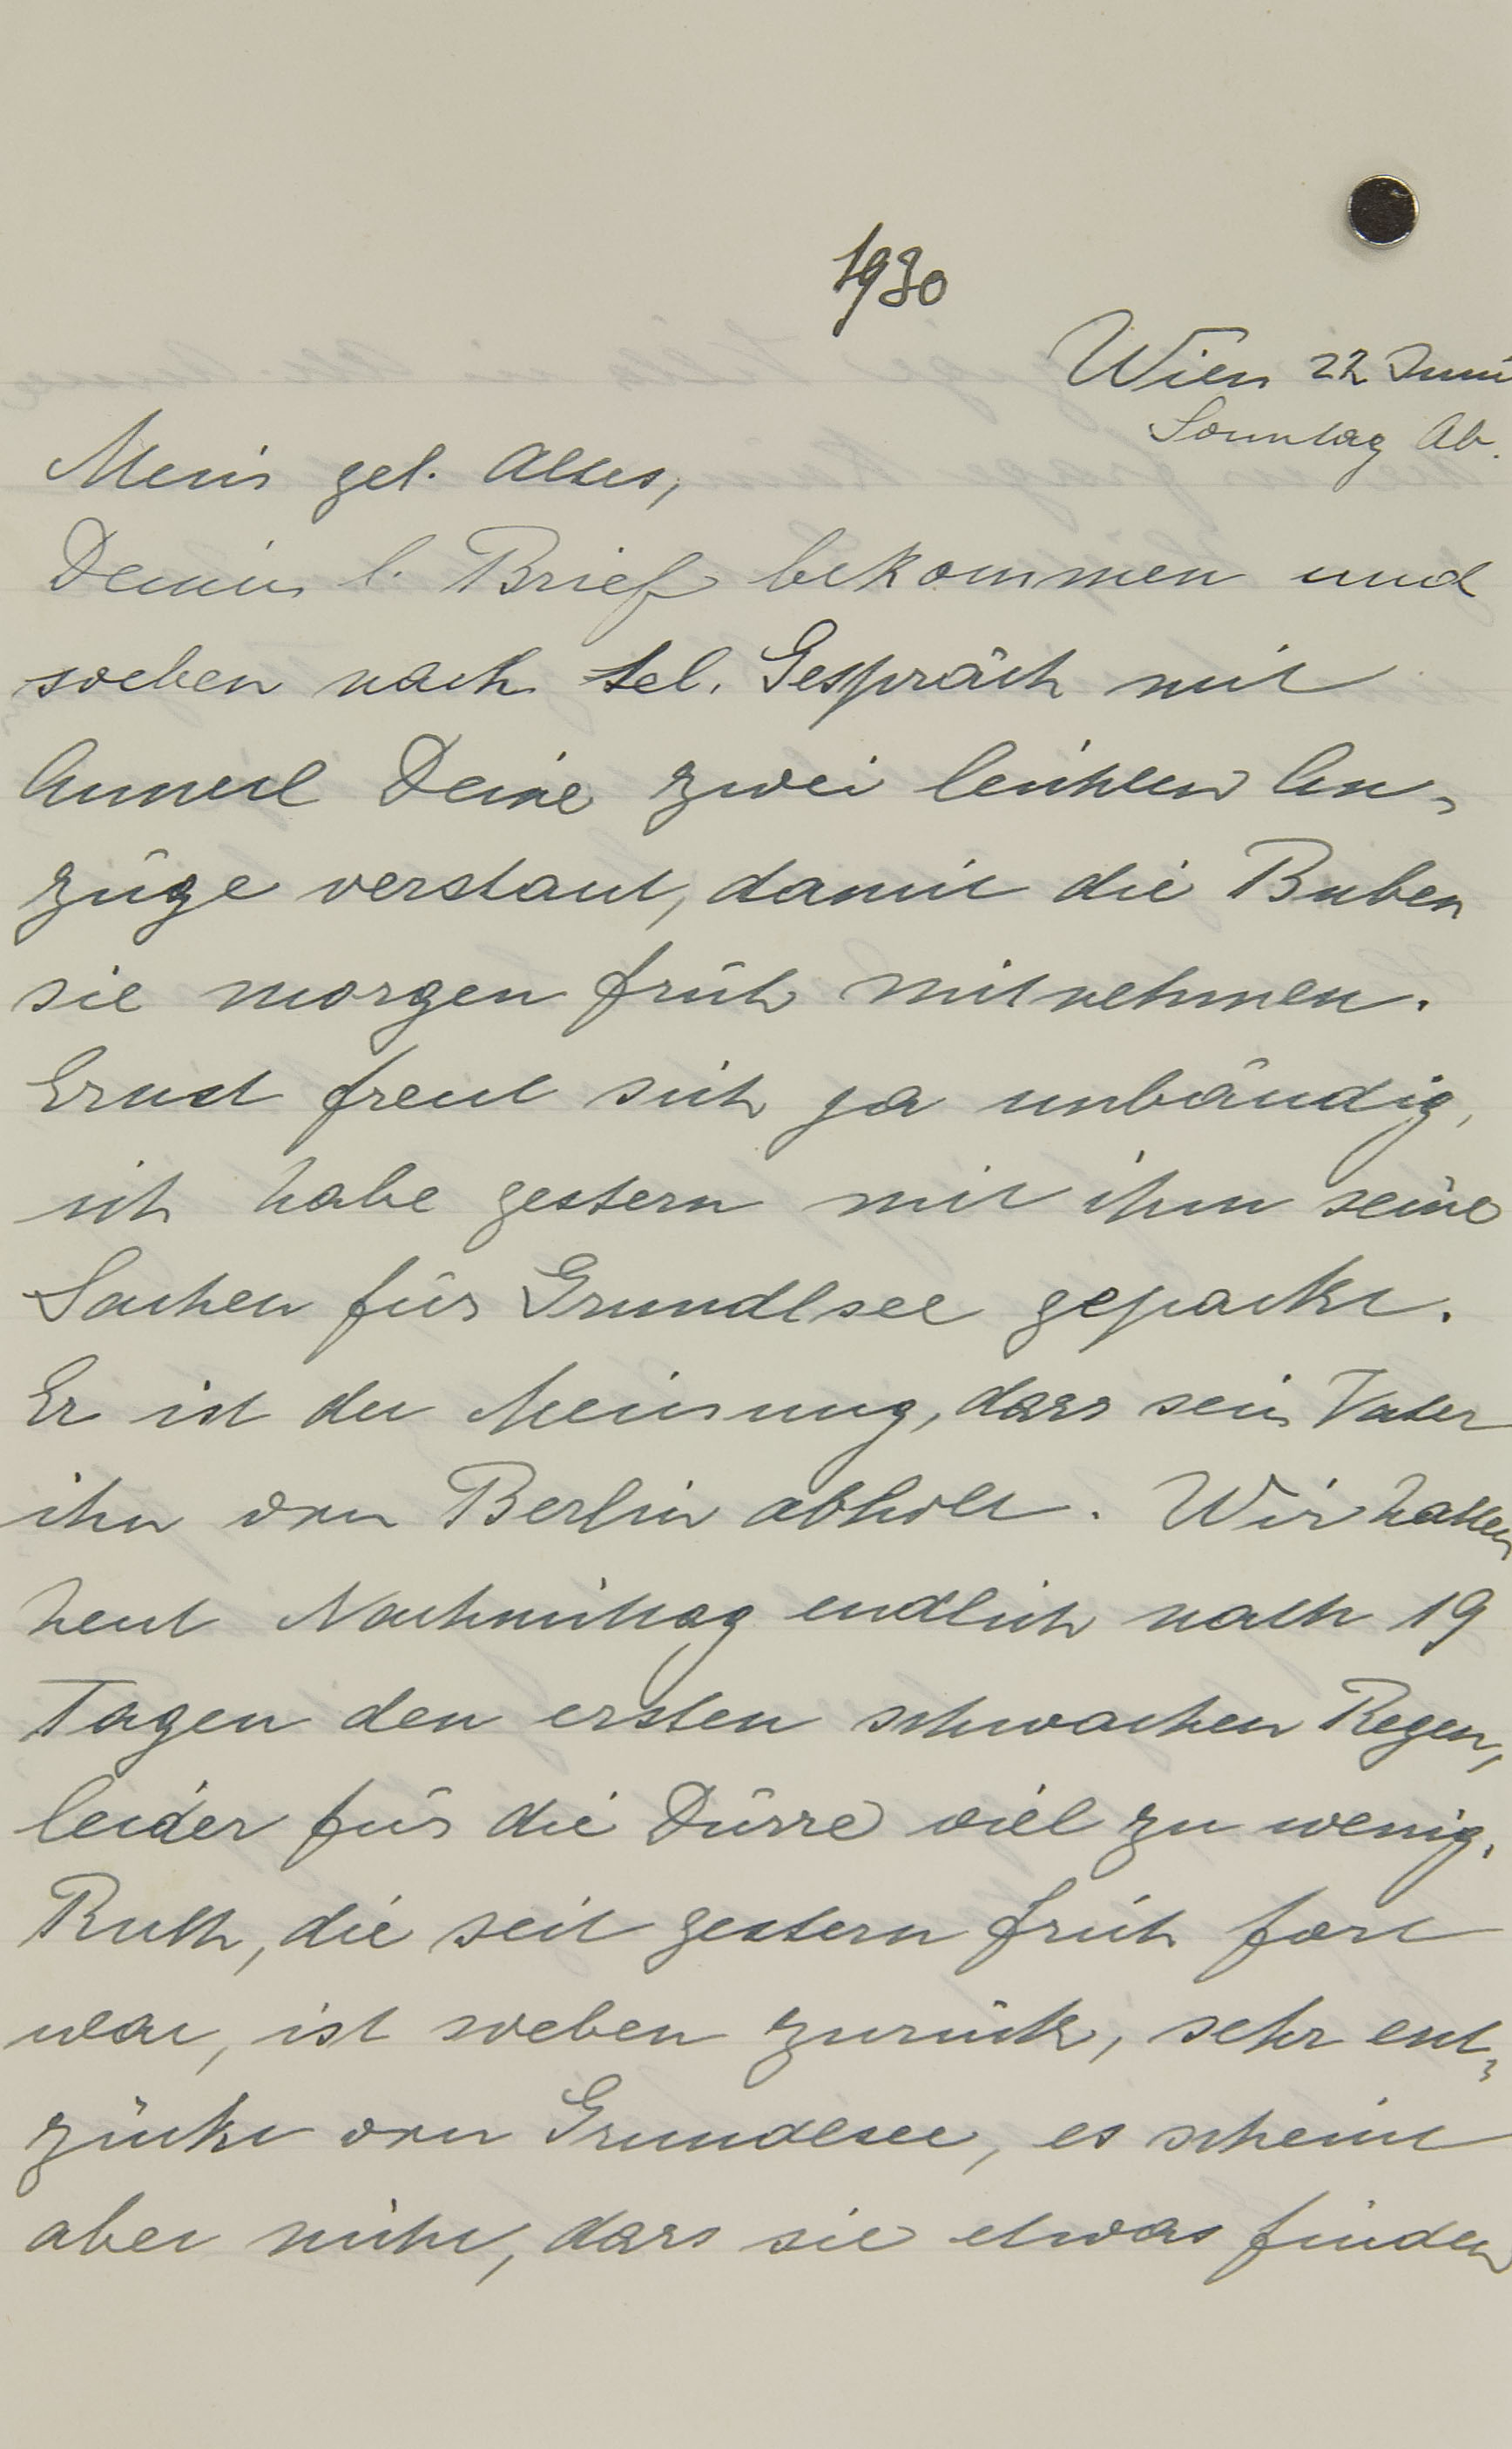 1930
Wien 22 Juni
Sonntag Ab.
Mein gel. Altes,
Deinen l. Brief bekommen und
soeben nach tel. Gespräch mit
Annerl Deine zwei leichten An-
züge verstaut, damit die Buben
sie morgen früh mitnehmen.
Ernst freut sich ja unbändig,
ich habe gestern mit ihm seine
Sachen für Grundlsee gepackt.
Er ist der Meinung, dass sein Vater
ihn von Berlin abholt. Wir hatten
heut Nachmittag endlich nach 19
Tagen den ersten schwachen Regen,
leider für die Dürre viel zu wenig.
Ruth, die seit gestern früh fort
war, ist soeben zurück, sehr ent-
zückt von Grundlsee, es scheint
aber nicht, dass sie etwas finden